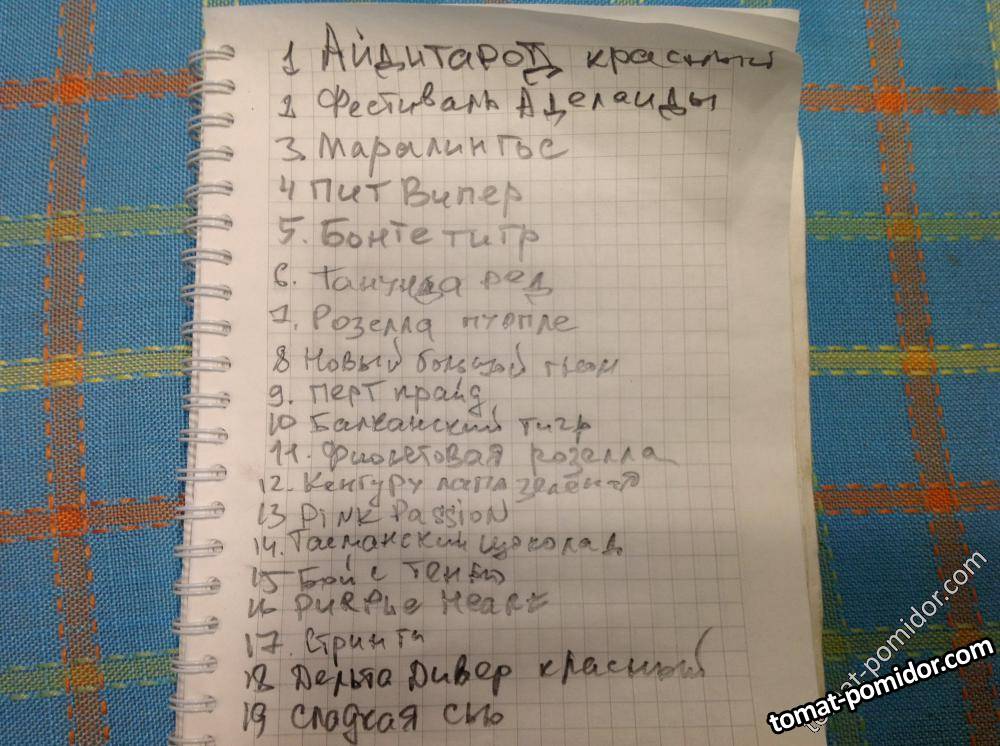 1 Айдитарод красный
2 Фестиваль Аделаиды
3. Маралингъс
4 Пит Випер
5. Бонте тигр
6. Танунда ред
7. Розелла пуопле
8 Новый большой гном
9. Перт прайд
10 Балканский тигр
11. Фиолетовая розелла
12. Кенгуру лапа зеленая
13 Pink Passion
14. Тасманский шоколад
15 Бой с тенью
16 Purple Heart
17. Стринги
18 Дельта Дивер красный
19 Сладкая Сью
tomat-pomidor.com
tomat-pomidor.com